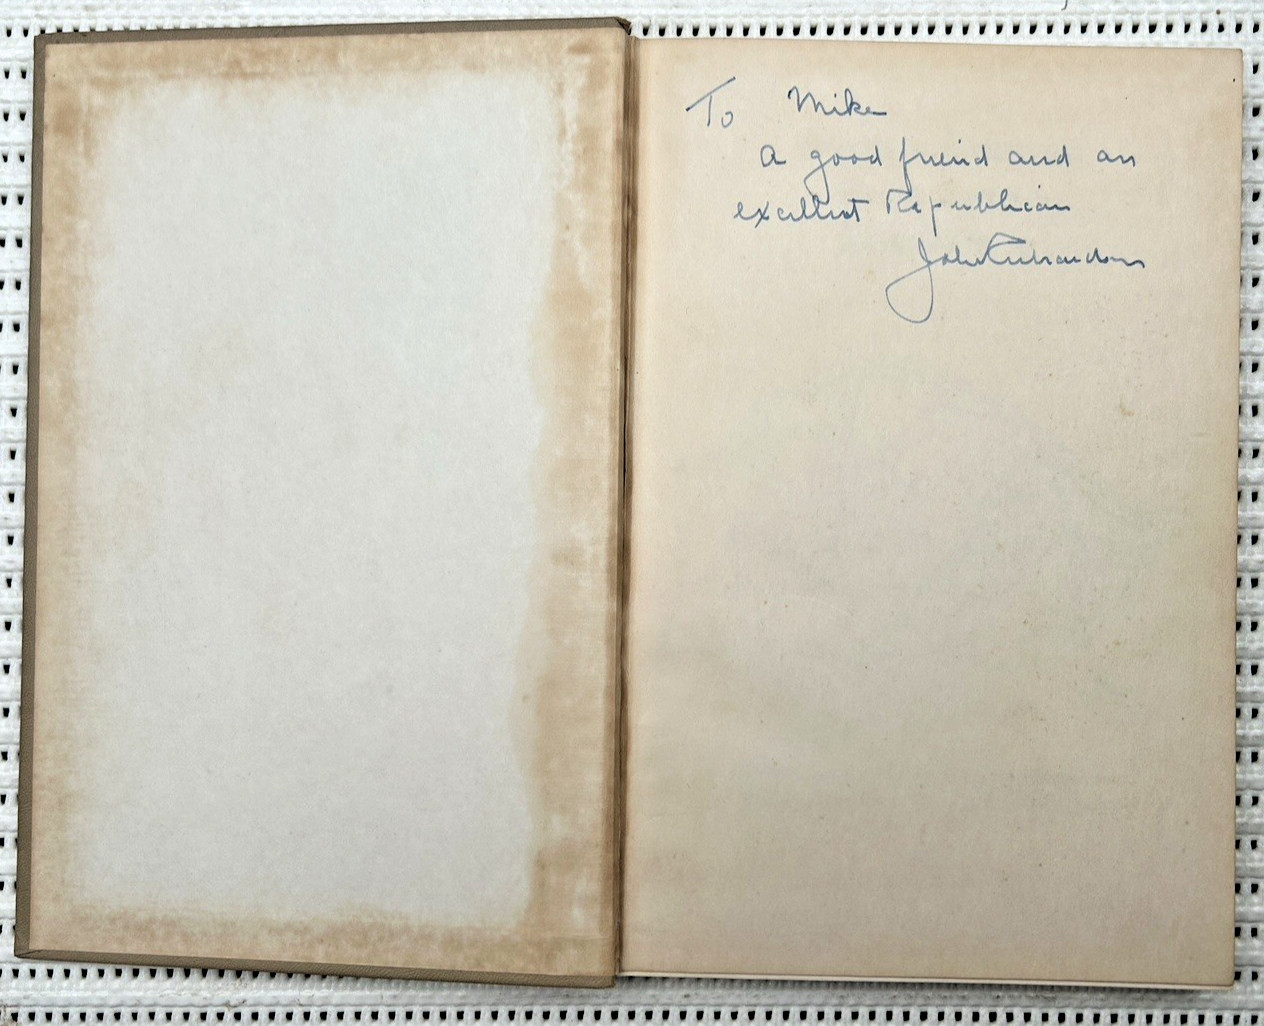 To Mike
A good friend and an
excellent Republican
John Richardson